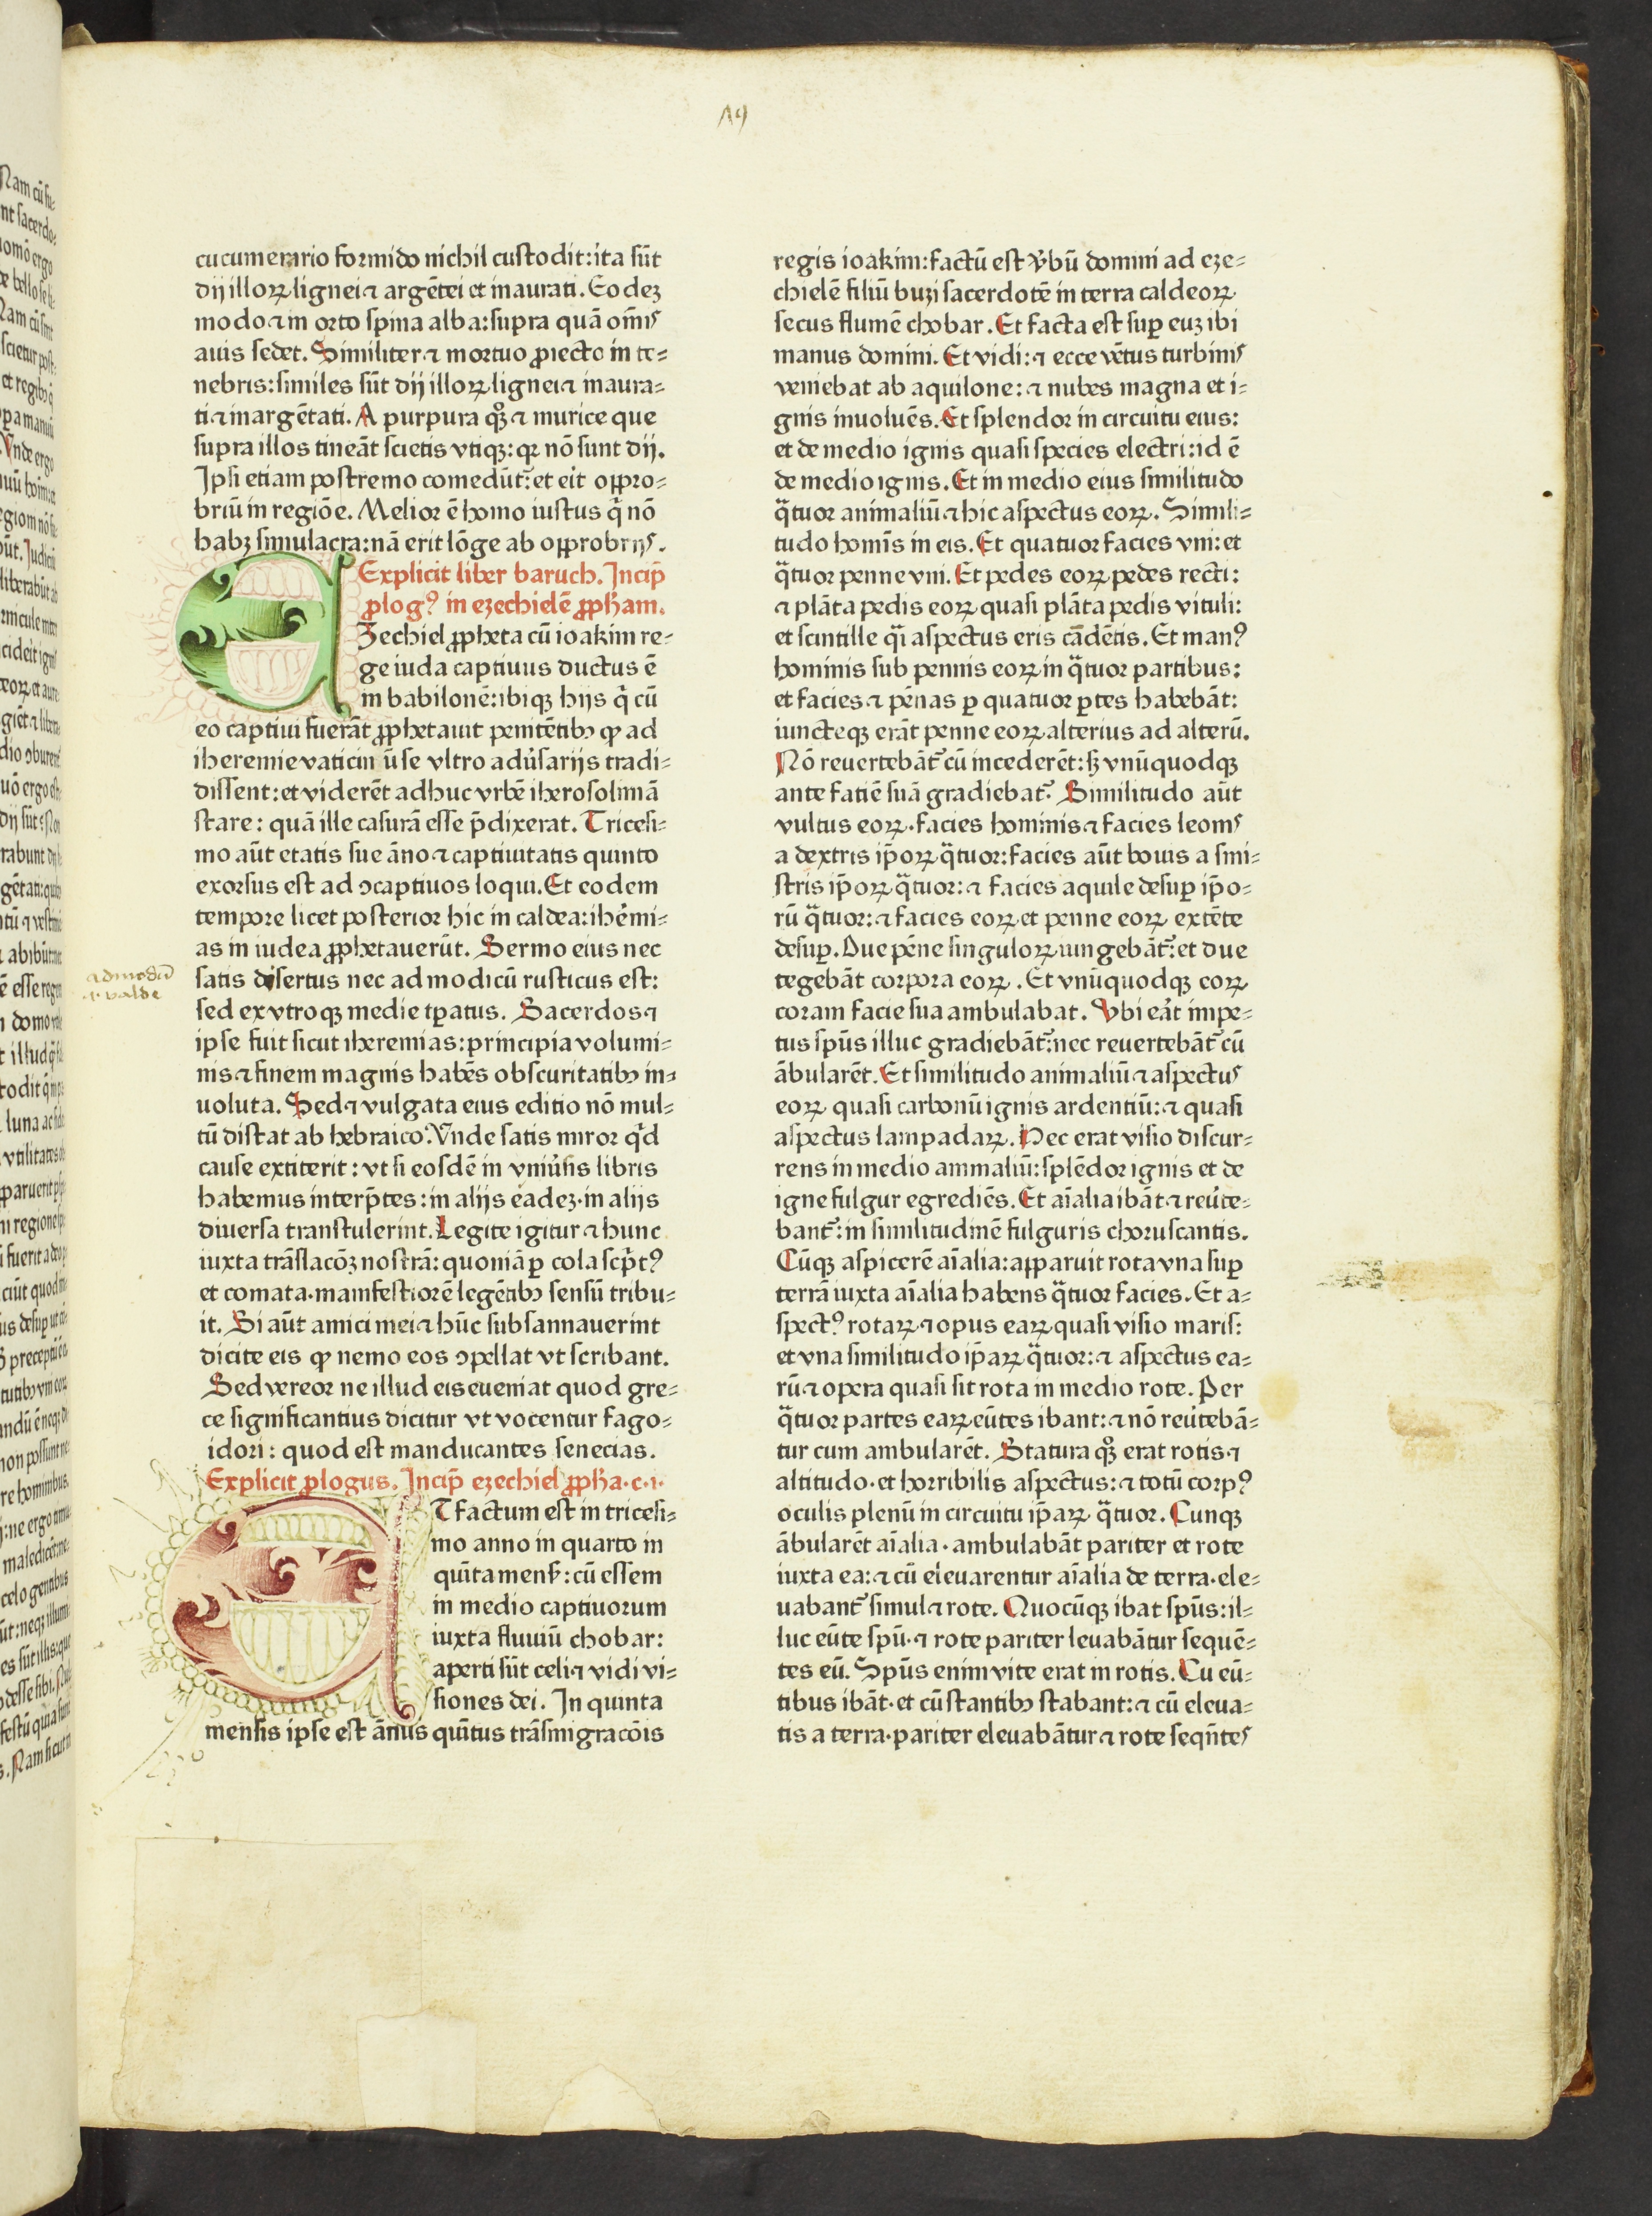 19
cucumerario formido nichil custodit:ita sūt
dij illoꝝ lignei ⁊ argētei et inaurati. Eodeꝫ
modo ⁊ in orto spina alba:supra quā om̄is
auis sedet. Similiter ⁊ mortuo ꝓiecto in te-
nebris:similes sūt dij illoꝝ lignei ⁊ inaura-
ti ⁊ inargētati. A purpura qͦꝫ ⁊ murice que
supra illos tineāt scietis vtiqꝫ: qꝛ nō sunt dij.
Ipsi etiam postremo comedūt᷑:et eit opꝓ-
briū in regiōe. Melior ē homo iustus q̄ nō
habꝫ simulacra:nā erit lōge ab opꝓbrijs.
Explicit liber baruch. Incip̄
ꝓlogꝰ in ezechielē ꝓpħam.
Zechiel ꝓpheta cū ioakim re-
ge iuda captiuus ductus ē
in babilonē:ibiqꝫ hijs q̄ cū
eo captiui fuerāt ꝓphetauit penitētibꝫ ꝙ ad
iheremie vaticiniū se vltro adu̓sarijs tradi-
dissent:et viderēt adhuc vrbē iherosolimā
stare: quā ille casurā esse p̄dixerat. Tricesi-
mo aūt etatis sue āno ⁊ captiuitatis quinto
exorsus est ad ↄcaptiuos loqui. Et eodem
tempore licet posterior hic in caldea:ihe̓mi-
as in iudea ꝓphetauerūt. Sermo eius nec
satis disertus nec admodicū rusticus est:
admodū
.i. valde
sed ex vtroqꝫ medie tꝑatus. Sacerdos ⁊
ipse fuit sicut iheremias:principia volumi-
nis ⁊ finem magnis habēs obscuritatibꝫ in-
uoluta. Sed ⁊ vulgata eius editio nō mul-
tū distat ab hebraico. Vnde satis miror qͥd
cause extiterit: vt si eosdē in vniu̓sis libris
habemus interp̄tes: in alijs eadeꝫ·in alijs
diuersa transtulerint. Legite igitur ⁊ hunc
iuxta trāslacōꝫ nostrā: quoniā ꝑ cola scp̄tꝰ
et comata·manifestiorē legētibꝫ sensū tribu-
it. Si aūt amici mei ⁊ hūc subsannauerint
dicite eis ꝙ nemo eos ↄpellat vt scribant.
Sed vereor ne illud eis eueniat quod gre-
ce significantius dicitur vt vocentur fago-
idori: quod est manducantes senecias.
Explicit ꝓlogus. Incip̄ ezechiel ꝓpħa·c·i·
T factum est in tricesi-
mo anno in quarto in
quīta mens̄: cū essem
in medio captiuorum
iuxta fluuiū chobar:
aperti sūt celi ⁊ vidi vi-
siones dei. In quinta
mensis ipse est ānus quītus trāsmigracōis
regis ioakim:factū est v̓bū domini ad eze-
chielē filiū buzi sacerdotē in terra caldeoꝝ
secus flumē chobar. Et facta est suꝑ euꝫ ibi
manus domini. Et vidi: ⁊ ecce vētus turbinis
veniebat ab aquilone: ⁊ nubes magna et i-
gnis inuoluēs. Et splendor in circuitu eius:
et de medio ignis quasi species electri:id ē
de medio ignis. Et in medio eius similitudo
q̄tuor animaliū ⁊ hic aspectus eoꝝ. Simili-
tudo homīs in eis. Et quatuor facies vni: et
q̄tuor penne vni. Et pedes eoꝝ pedes recti:
⁊ plāta pedis eoꝝ quasi plāta pedis vituli:
et scintille q̄i aspectus eris cādētis. Et manꝰ
hominis sub pennis eoꝝ in q̄tuor partibus:
et facies ⁊ pēnas ꝑ quatuor ꝑtes habebāt:
iuncteqꝫ erāt penne eoꝝ alterius ad alterū.
Nō reuertebāt᷑ cū incederēt: sꝫ vnūquodqꝫ
ante fatiē suā gradiebat᷑. Similitudo aūt
vultus eoꝝ·facies hominis ⁊ facies leonis
a dextris ip̄oꝝ q̄tuor: facies aūt bouis a sini-
stris ip̄oꝝ q̄tuor: ⁊ facies aquile desuꝑ ip̄o-
rū q̄tuor: ⁊ facies eoꝝ et penne eoꝝ extēte
desuꝑ. Due pēne singuloꝝ iungebāt᷑: et due
tegebāt corpora eoꝝ. Et vnūquodqꝫ eoꝝ
coram facie sua ambulabat. Vbi ea̓t impe-
tus spūs illuc gradiebāt᷑: nec reuertebāt᷑ cū
ābularēt. Et similitudo animaliū ⁊ aspectus
eoꝝ quasi carbonū ignis ardentiū: ⁊ quasi
aspectus lampadaꝝ. Hec erat visio discur-
rens in medio animaliū: splēdor ignis et de
igne fulgur egrediēs. Et aīalia ibāt ⁊ reu̓te-
bant᷑: in similitudinē fulguris choruscantis.
Cūqꝫ aspicerē aīalia: apparuit rota vna suꝑ
terrā iuxta aīalia habens q̄tuor facies. Et a-
spectꝰ rotaꝝ ⁊ opus eaꝝ quasi visio maris:
et vna similitudo ip̄aꝝ q̄tuor: ⁊ aspectus ea-
rū ⁊ opera quasi sit rota in medio rote. Per
q̄tuor partes eaꝝ eūtes ibant: ⁊ nō reu̓tebā-
tur cum ambularēt. Statura qͦꝫ erat rotis ⁊
altitudo·et horribilis aspectus: ⁊ totū corpꝰ
oculis plenū in circuitu ip̄aꝝ q̄tuor. Cunqꝫ
ābularēt aīalia·ambulabāt pariter et rote
iuxta ea: ⁊ cū eleuarentur aīalia de terra·ele-
uabant᷑ simul ⁊ rote. Quocūqꝫ ibat spūs: il-
luc eūte spū·⁊ rote pariter leuabātur sequē-
tes eū. Spūs enim vite erat in rotis. Cū eū-
tibus ibāt·et cū stantibꝫ stabant: ⁊ cū eleua-
tis a terra·pariter eleuabātur ⁊ rote seqūtes